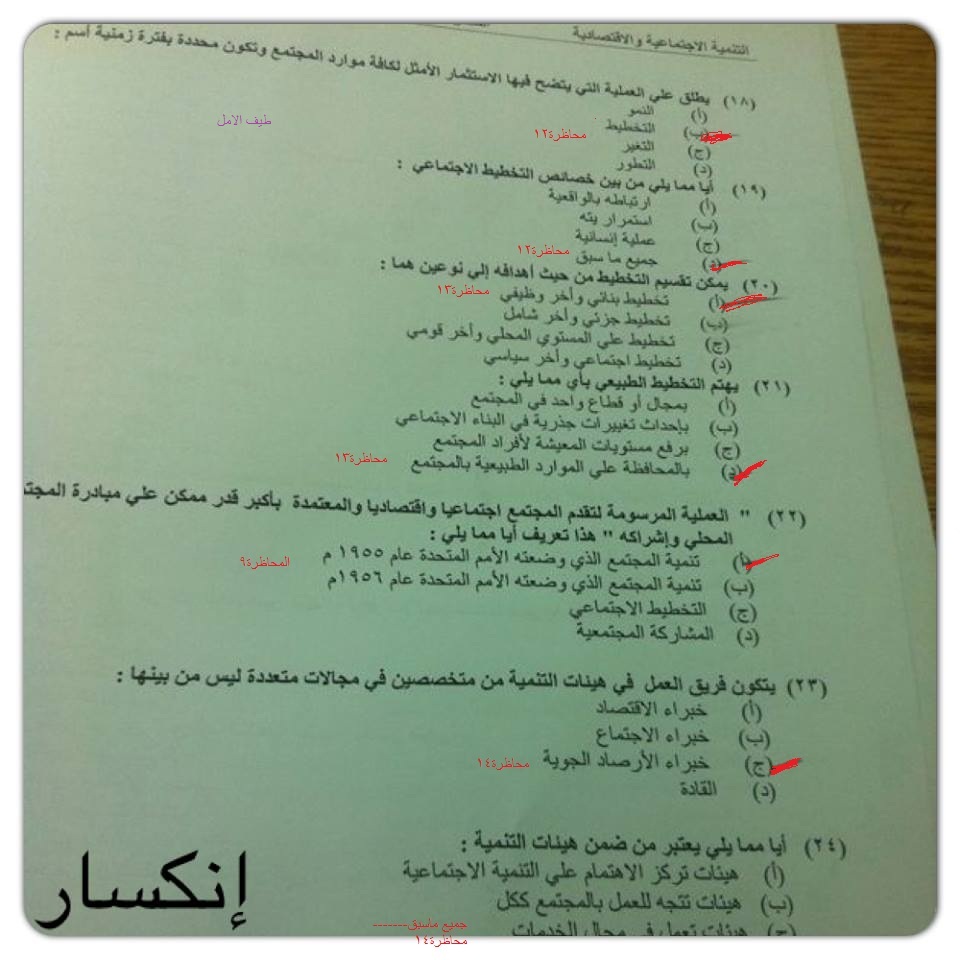 التنمية الاجتماعية والاقتصادية
(١٨) يطلق علي العملية التي يتضح فيها الاستثمار الأمثل لكافة موارد المجتمع وتكون محددة بفترة زمنية أسم :
(أ) النمو
طيف الامل
(ب) التخطيط محاظرة١٢
(ج) التغير
(د) التطور
(١٩) أيا مما يلي من بين خصائص التخطيط الاجتماعي :
(أ) ارتباطه بالواقعية
(ب) استمرار يته
(ج) عملية إنسانية
(د) جميع ما سبق محاظرة١٢
(٢٠) يمكن تقسيم التخطيط من حيث أهدافه إلي نوعين هما :
(أ) تخطيط بنائي وأخر وظيفي محاظرة١٣
(ب) تخطيط جزئي وأخر شامل
(ج) تخطيط علي المستوي المحلي وأخر قومي
(د) تخطيط اجتماعي وأخر سياسي
(٢١) يهتم التخطيط الطبيعي بأي مما يلي :
(أ) بمجال أو قطاع واحد في المجتمع
(ب) بإحداث تغييرات جذرية في البناء الاجتماعي
(ج) برفع مستويات المعيشة لأفراد المجتمع
(د) بالمحافظة علي الموارد الطبيعية بالمجتمع محاظرة١٣
(٢٢) " العملية المرسومة لتقدم المجتمع اجتماعيا واقتصاديا والمعتمدة بأكبر قدر ممكن علي مبادرة المجت
المحلي وإشراكه " هذا تعريف أيا مما يلي :
(أ) تنمية المجتمع الذي وضعته الأمم المتحدة عام ١٩٥٥ م المحاظرة٩
(ب) تنمية المجتمع الذي وضعته الأمم المتحدة عام ١٩٥٦م
(ج) التخطيط الاجتماعي
(د) المشاركة المجتمعية
(٢٣) يتكون فريق العمل في هيئات التنمية من متخصصين في مجالات متعددة ليس من بينها :
(أ) خبراء الاقتصاد
(ب) خبراء الاجتماع
(ج) خبراء الأرصاد الجوية محاظرة١٤
(د) القادة
(٢٤) أيا مما يلي يعتبر من ضمن هيئات التنمية :
(أ) هيئات تركز الاهتمام علي التنمية الاجتماعية
(ب) هيئات تتجه للعمل بالمجتمع ككل
(ج) هيئات تعمل في مجال الخدمات
جميع ماسبق-------
محاظرة١٤
إنكسار